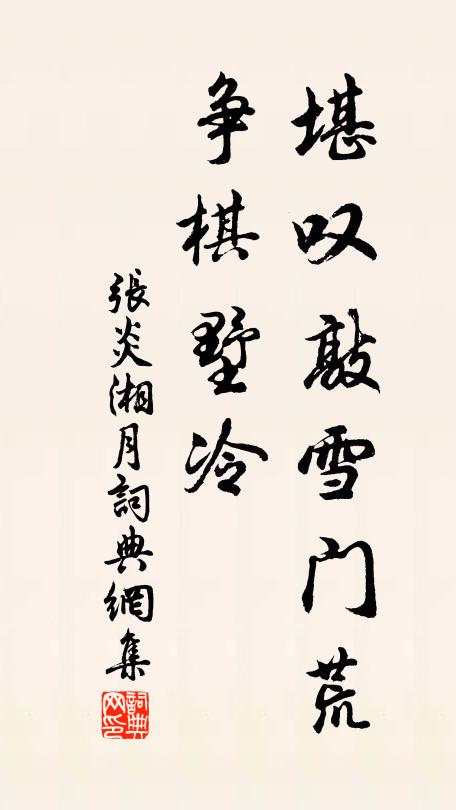 堪叹敲雪门荒
争棋墅冷
張炎湘月詞典網集
詞典
网印